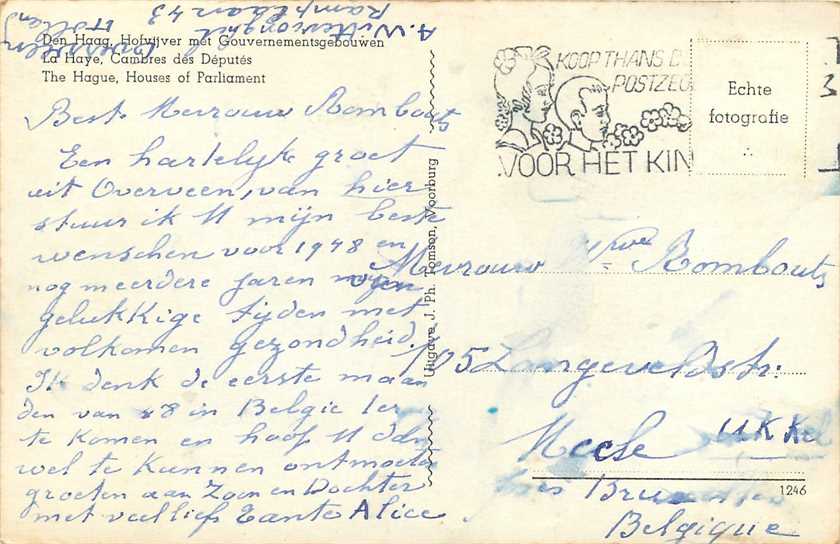 Den Haag, Hofvijver met Gouvernementsgebouwen
La Haye, Cambres des Députés
The Hague, Houses of Parliament
Ramplaan 43
Best Mevrouw Rombouts
Een hartelijke groet
uit Overveen, van hier
stuur ik U mijn beste
wenschen voor 1948 en
nog meerdere jaren
gelukkige tijden met
volkomen gezondheid.
Ik denk de eerste maan
den van 48 in België
te komen en hoop U dan
wel te kunnen ontmoeten
groeten aan Zoon en Dochter
met veel liefs Tante Alice
Uitgave J. Ph. Tomson, Voorburg
KOOP THANS
POSTZEG
VOOR HET KIN
Echte
fotografie
Mevrouw Rombouts
105 Langeveldstr.
UKKel
Belgique
1246